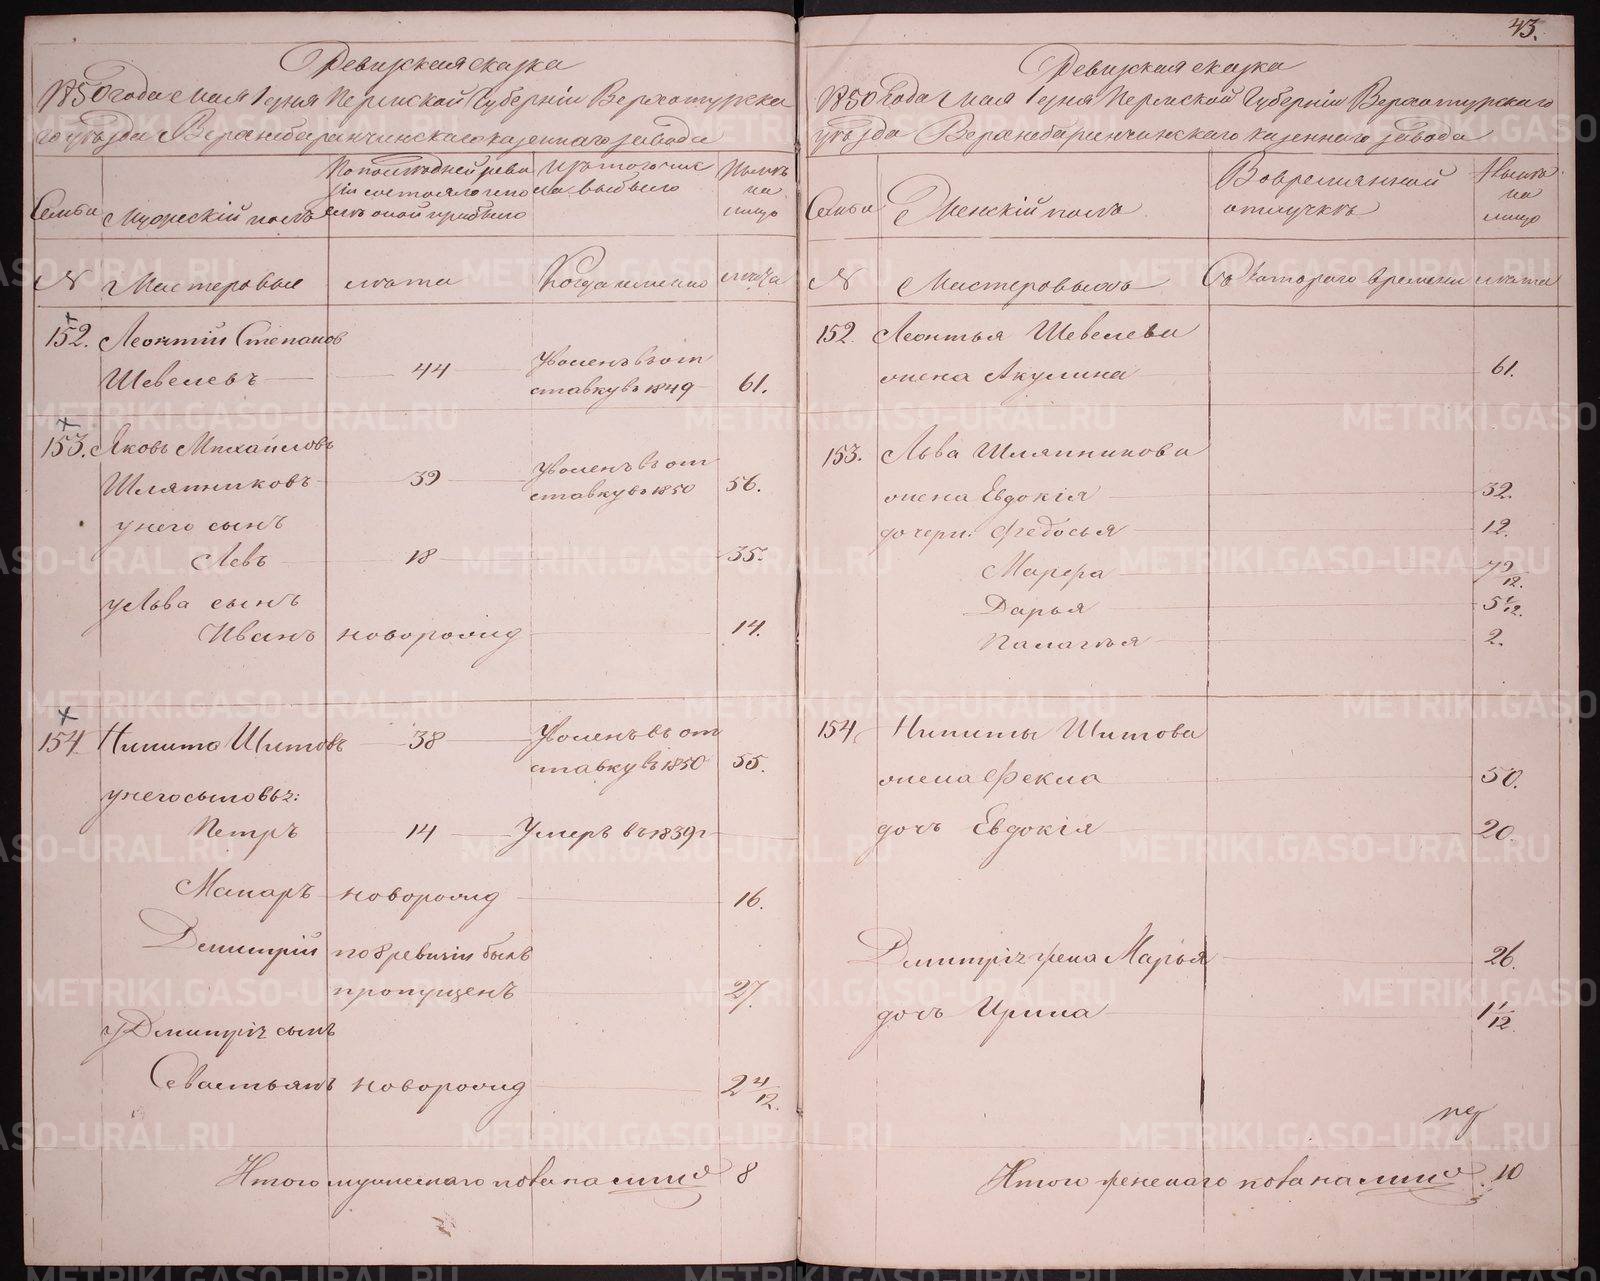 43.
Ревижская сказка
1850 года мая 1 дня Пермской Губерніи Верхотурска
го уѣзда Верхнебаранчинскаго казеннаго завода
Семьи
Мужескій полъ
По последней реви
зіи состояло и по
слѣ оной прибыло
Изъ того числа
выбыло
Нынѣ
на
лицо
№
Мастеровые
лѣта
Когда именно
лѣта
152. Леонтій Степановъ
Шевелевъ 44 Уволенъ въ от
ставку въ 1849 61.
153. Яковъ Михайловъ
Шляпниковъ 39 Уволенъ въ от
ставку въ 1850 56.
у него сынъ
Левъ 18 35.
у Льва сынъ
Иванъ новорожд 14.
154 Никита Шитовъ 38 Уволенъ въ от
ставку въ 1850 55.
у него сыновья:
Петръ 14 Умеръ въ 1839 г
Макаръ новорожд 16.
Дмитрій по 8 ревизіи былъ
пропущенъ 27.
у Дмитрія сынъ
Севастьянъ новорожд 2 4/12.
Итого мужескаго пола на лицо 8
Ревижская сказка
1850 года мая 1 дня Пермской Губерніи Верхотурскаго
уѣзда Верхнебаранчинскаго казеннаго завода
Семьи
Женскій полъ
Во временной
отлучкѣ
Нынѣ
на
лицо
№
Мастеровыхъ
Съ котораго времени
лѣта
152. Леонтья Шевелева
жена Акулина 61.
153. Льва Шляпникова
жена Евдокія 32.
дочери: Федосья 12.
Марфа
Дарья
Палагѣя 2.
154. Никиты Шитова
жена Фекла 50.
дочь Евдокія 20.
Дмитрія жена Марья 26.
дочь Ирина 1 1/12.
Итого женскаго пола на лицо 10
METRIKI.GASO-URAL.RU